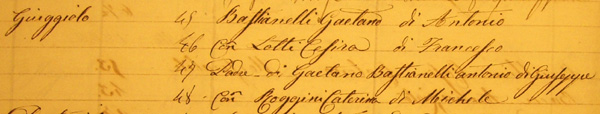 Giuggiolo 45 Bastianelli Gaetano di Antonio
46 Con Lotti Cesira di Francesco
47 Padre di Gaetano Bastianelli Antonio di Giuseppe
48 Con Roggini Caterina di Michele